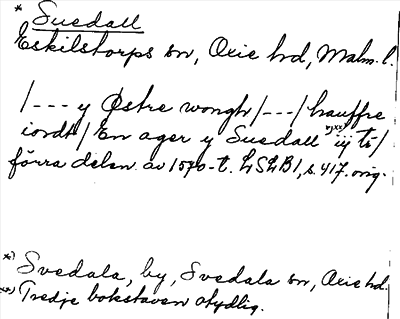 * Suedall
Eskilstorps sn, Oxie hd, Malm. l.
/--- y Østre wongh/---/hauffre
iordt/ En ager y Suedall **) iij tö/
förra delen av 1570-t. LSLB1, s. 417. orig.
*) Svedala, by, Svedala sn, Oxie hd.
**) Tredje bokstaven otydlig.